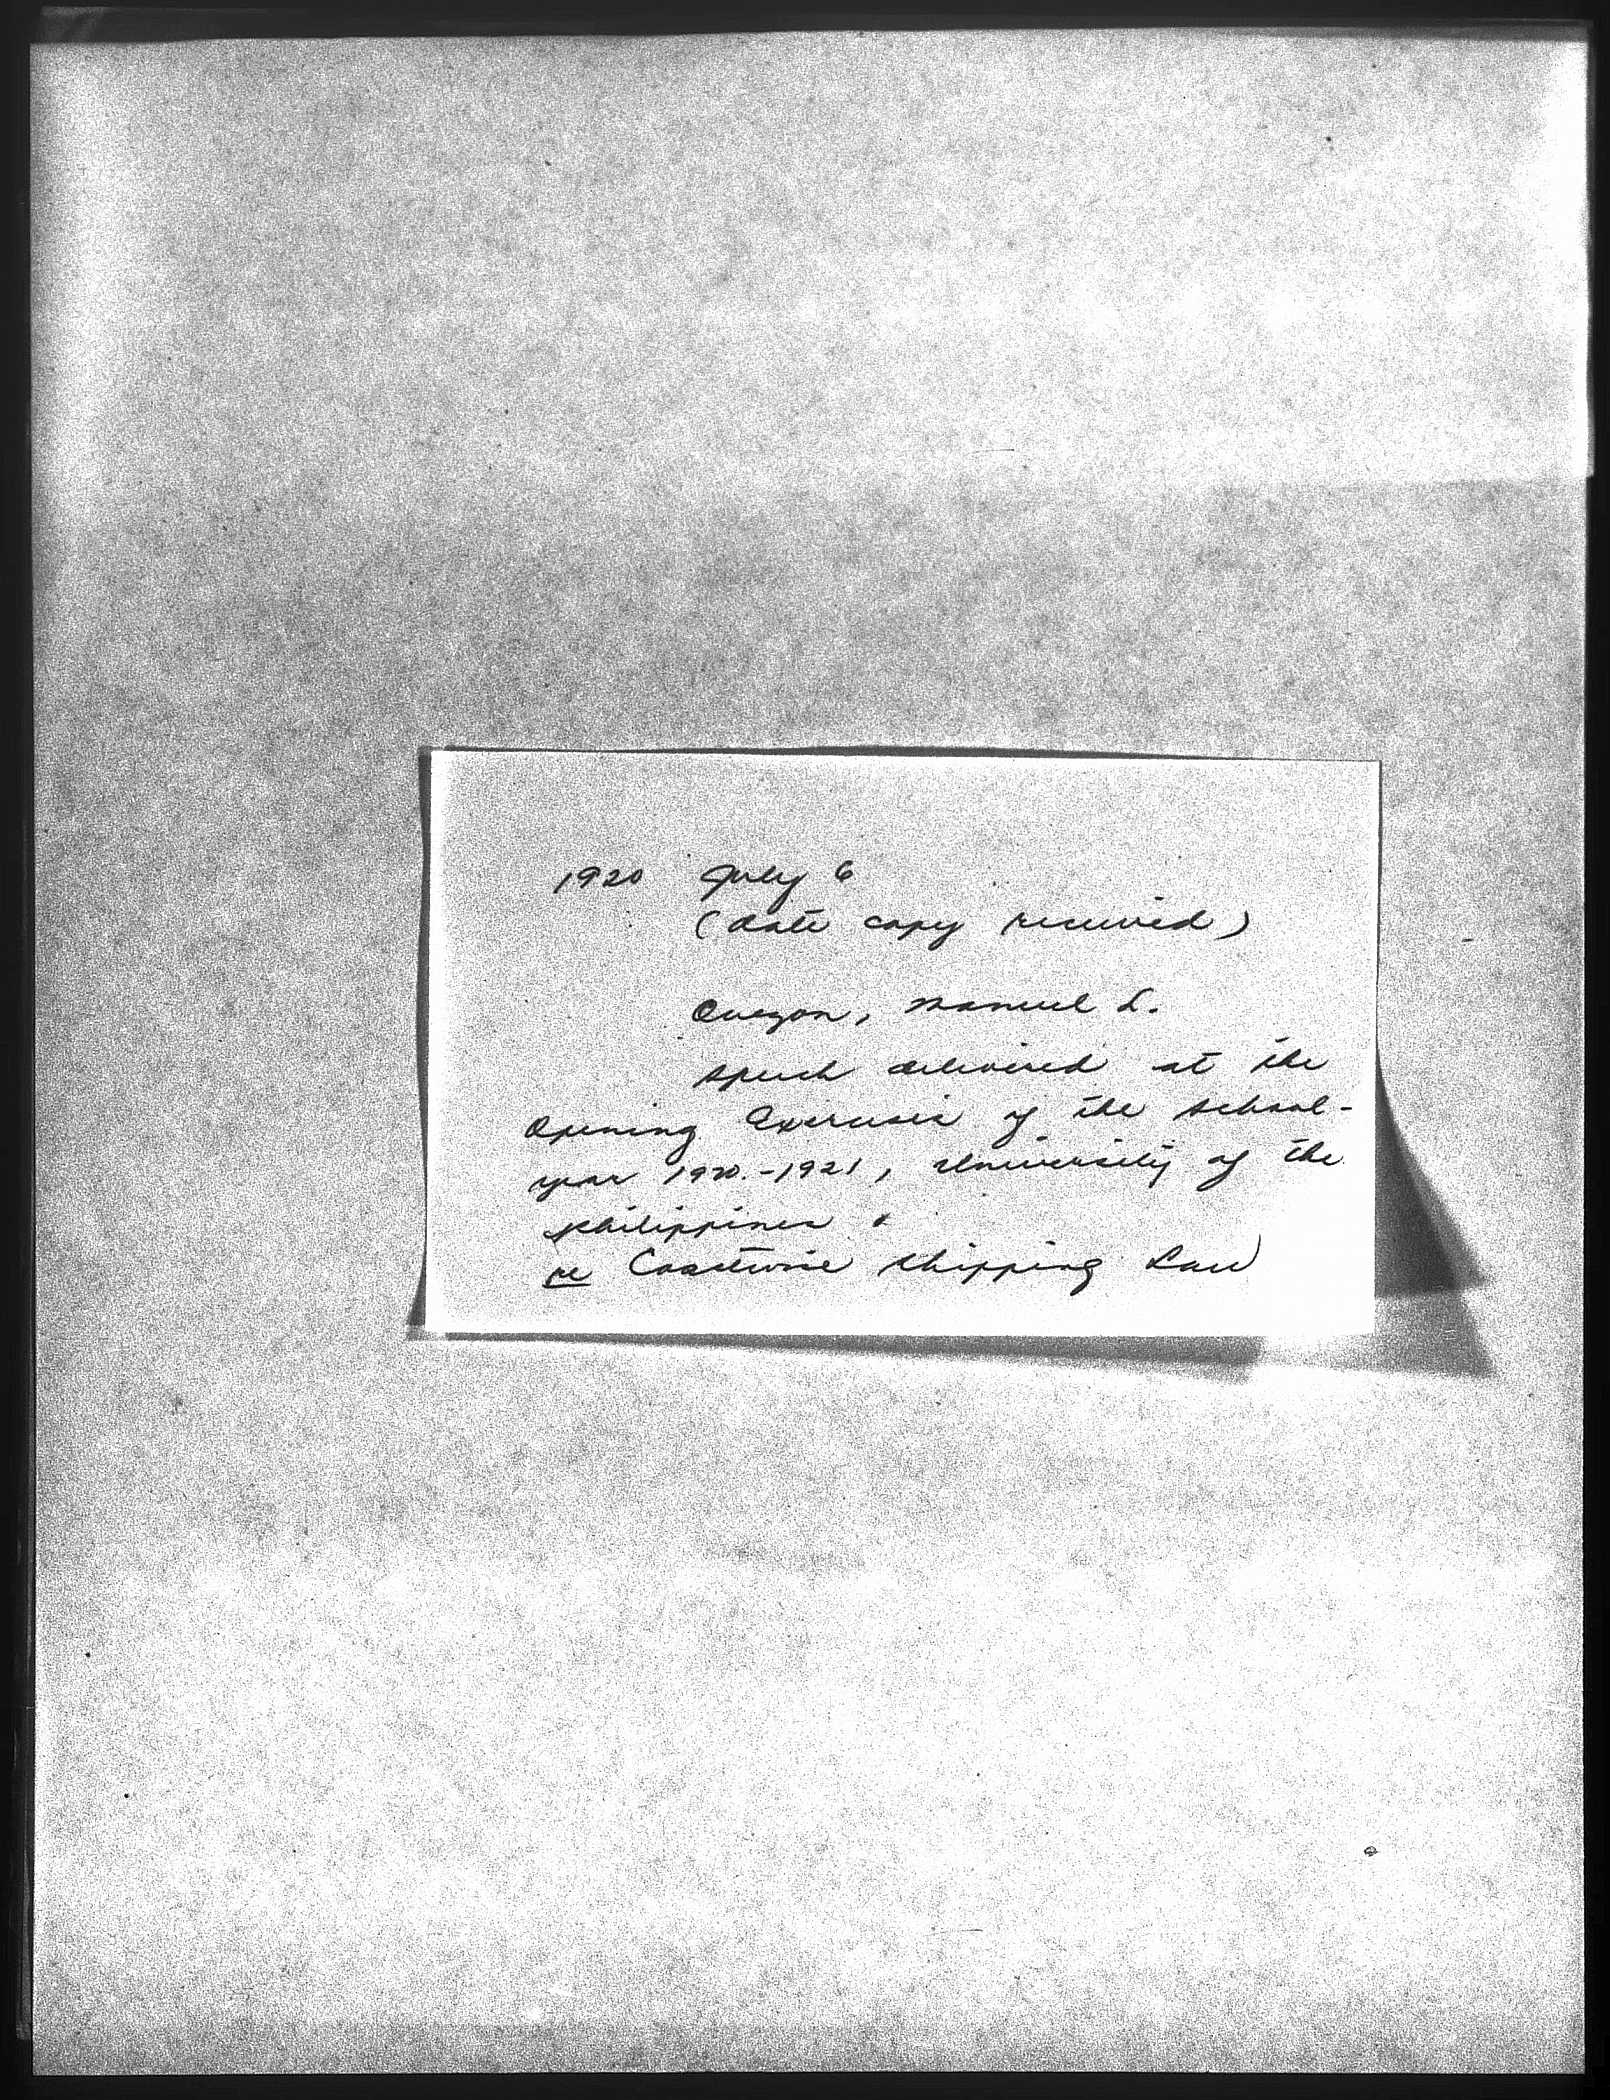 1920 July 6
(date copy received)
Quezon, Manuel L.
Speech delivered at the
Opening Exercises of the School-
year 1920-1921, University of the
Philippines.
re Coastwise Shipping Law